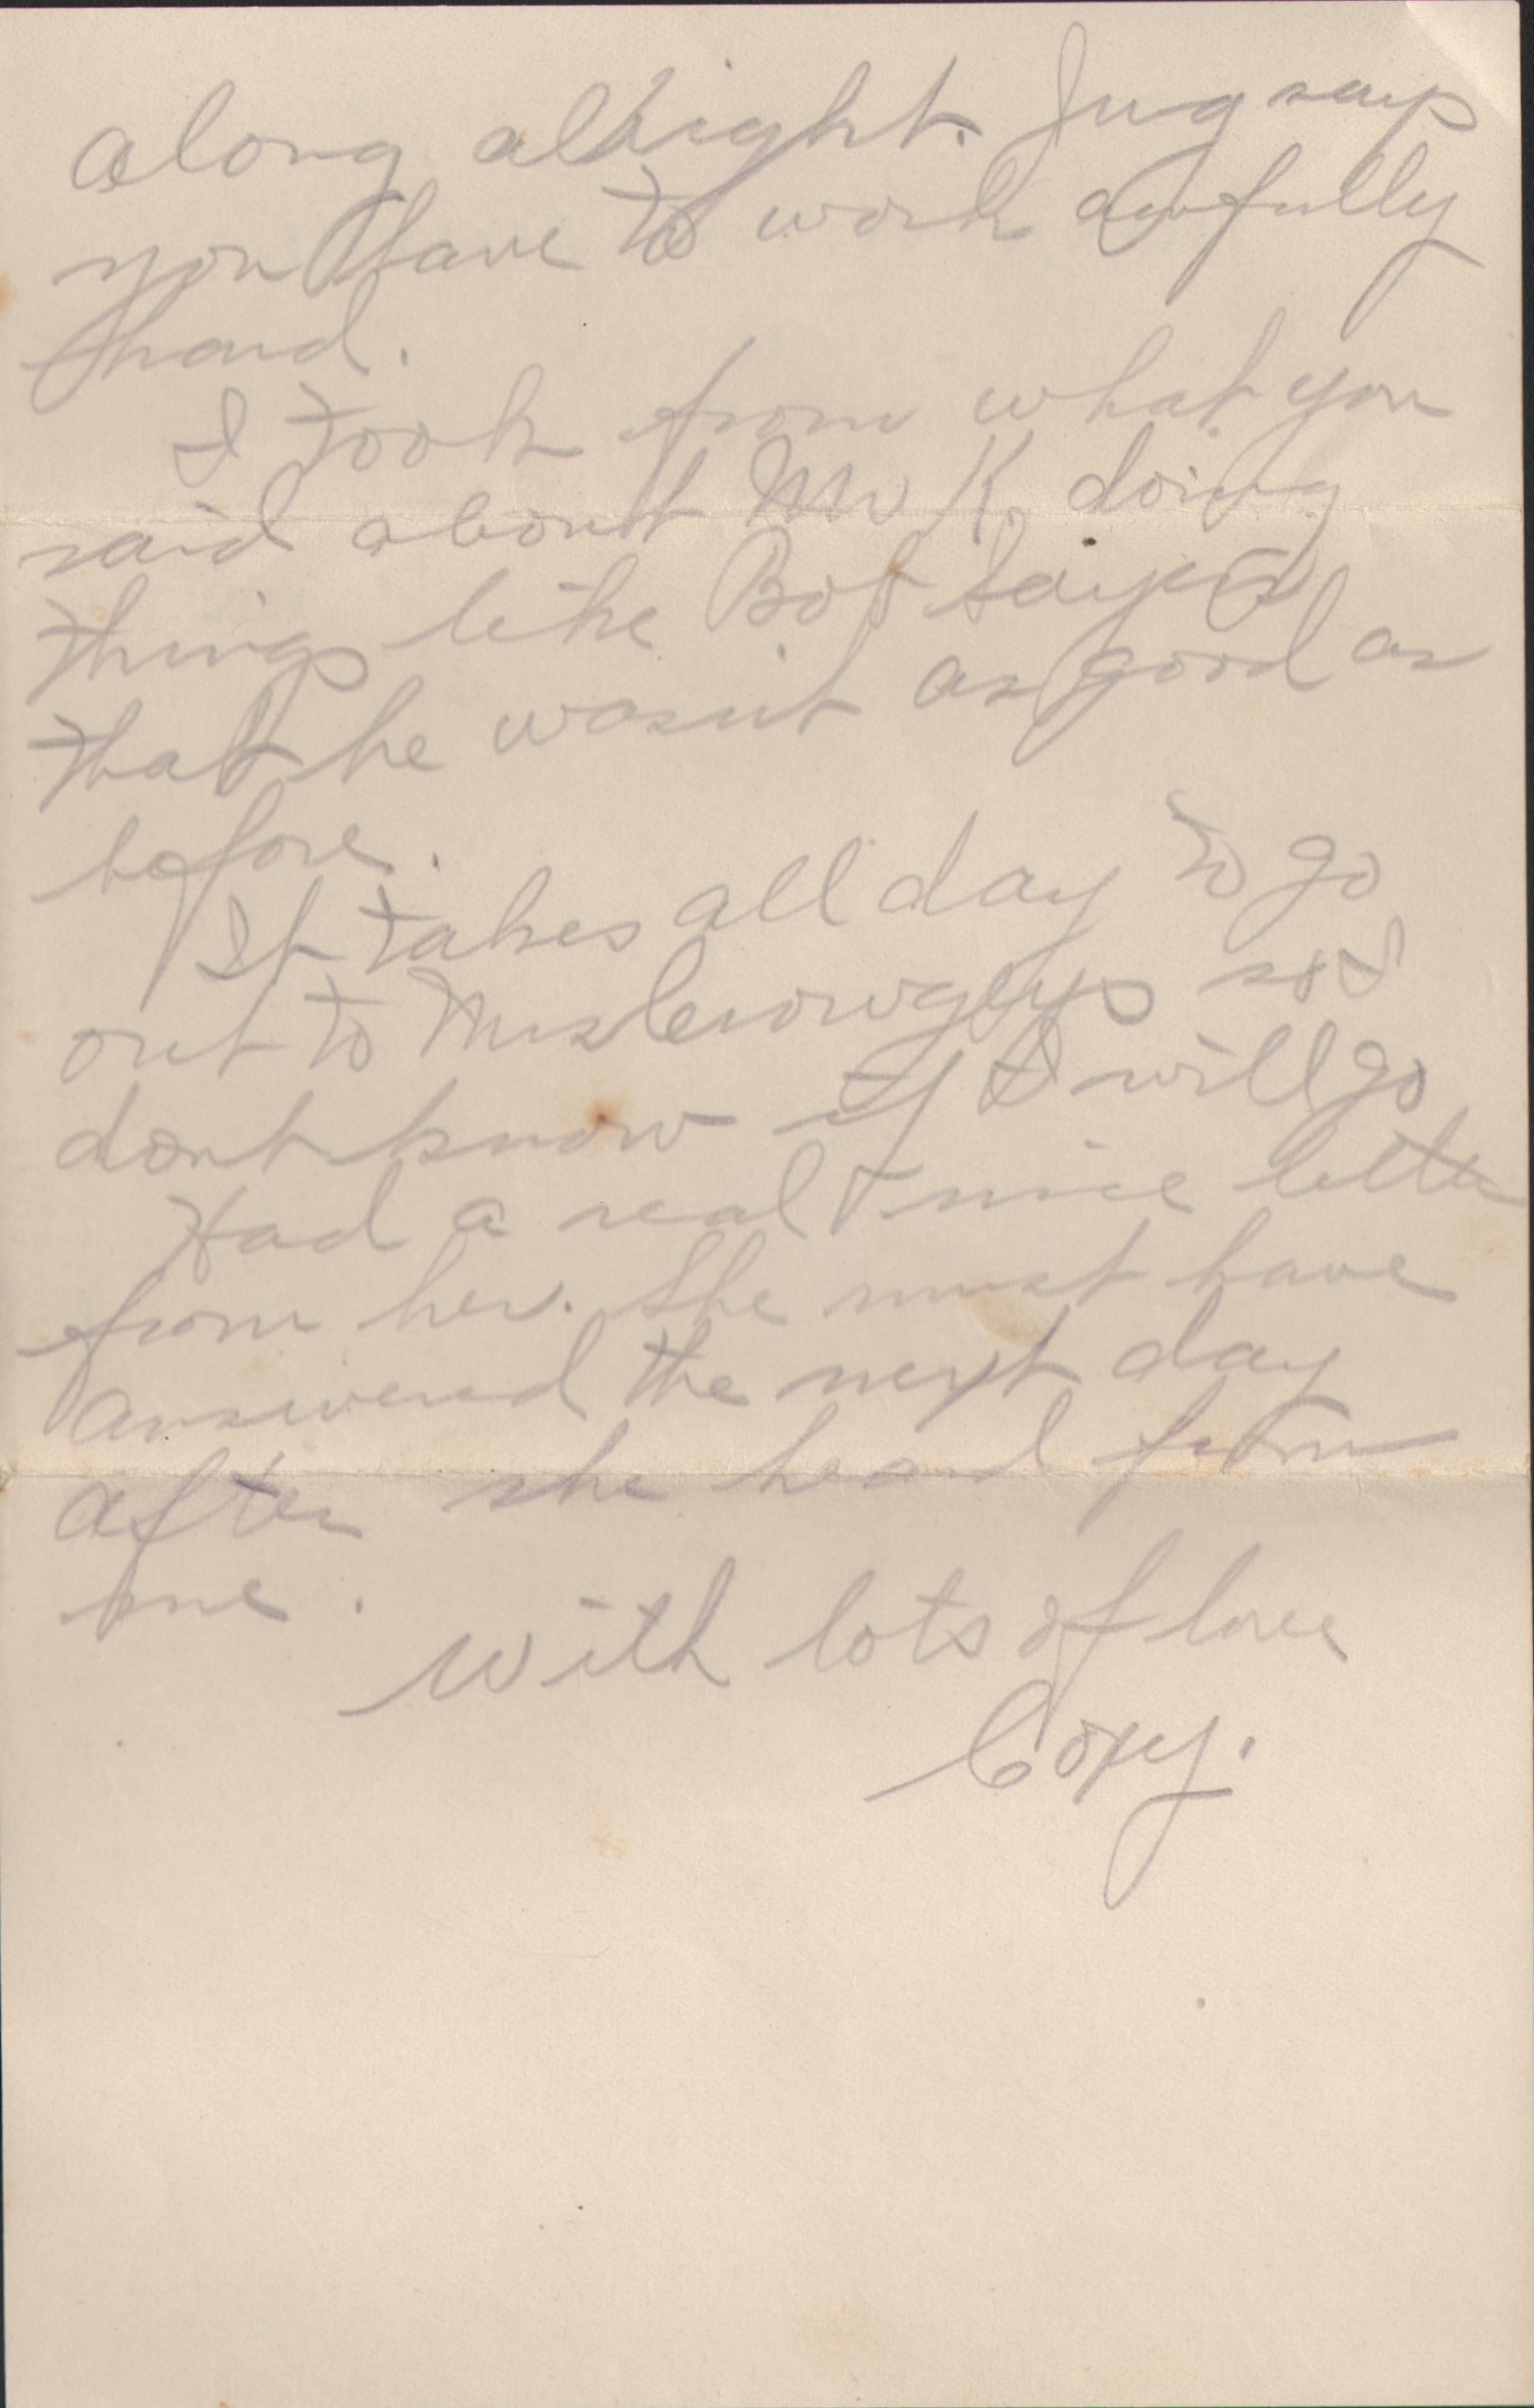 along allright. Jug says
you have to work awfully
hard.
I took from what you
said about Mr K. doing
things like Bob says
that he wasn't as good as
before.
It takes all day to go
out to so I
dont know if I will go
Had a real nice letter
from her. She must have
answered the next day
after she heard from
me.
With lots of love
Cory.